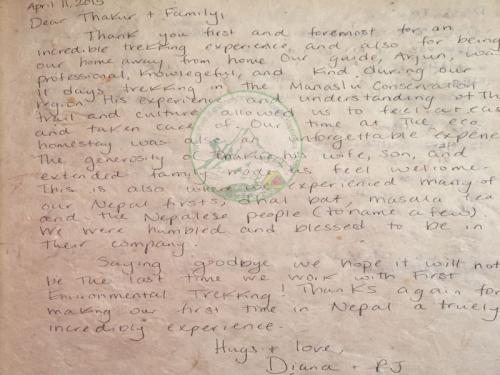 April 11, 2015
Dear Thakur + Family,
Thank you first and foremost for an
incredible trekking experience, and also for being
our home away from home. Our guide, Arjun, was
professional, knowlegeful, and kind during our
11 days trekking in the Manaslu Conservation
region. His experience and understanding of the
trail and culture allowed us to feel at ease
and taken care of. Our time at the eco
homestay was also an unforgettable experience
The generosity of Thakur, his wife, son, and
extended family made us feel welcome.
This is also where we experienced many of
our Nepal firsts, dhal bat, masala tea
and the Nepalese people (to name a few)
We were humbled and blessed to be in
their company.
Saying goodbye we hope it will not
be the last time we work with First
Environmental Trekking! Thanks again for
making our first time in Nepal a truely
incredibly experience.
Hugs + love,
Diana + PJ